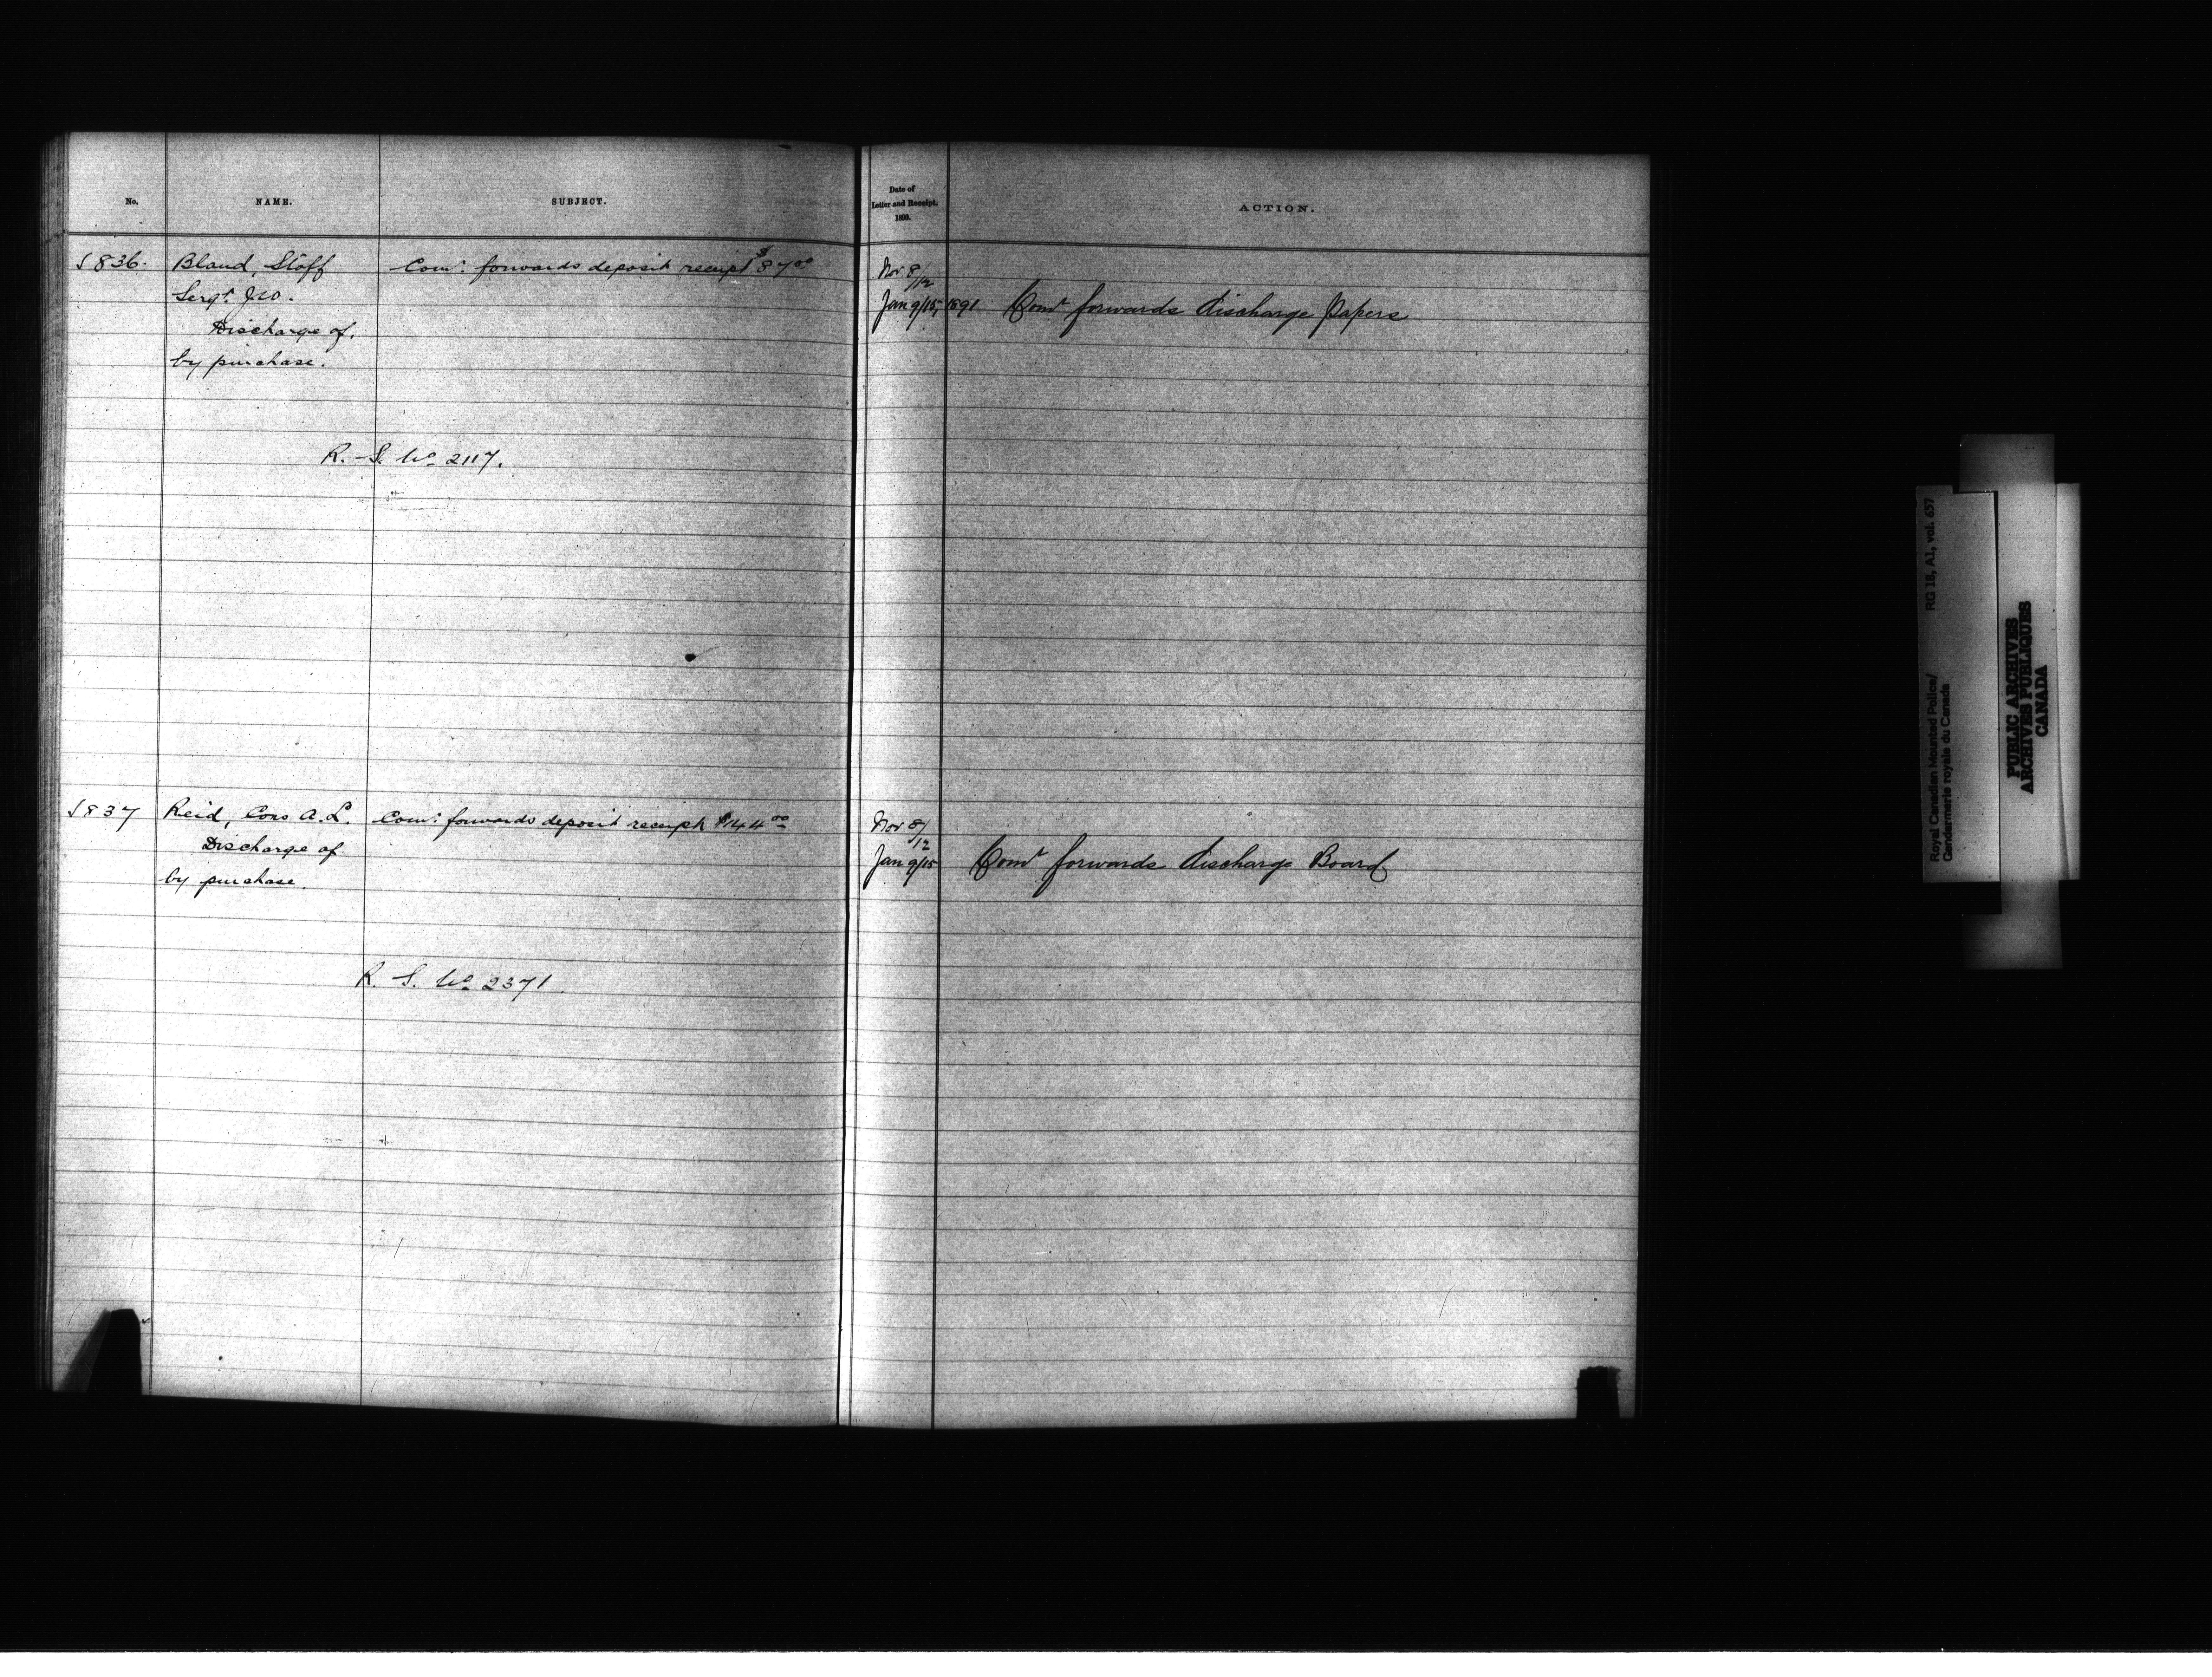 No.
NAME.
SUBJECT.
Date of
Letter and Receipt.
1890.
ACTION.
S836. Bland, Staff Comr. forwards deposit receipt $87.00 Nov 8/12
Sergt. J.W. Jan 9/15, 1891 Comr forwards discharge Papers
Discharge of.
by purchase.
R. S. No 2117.
S837 Reid, Cons A. L. Comr. forwards deposit receipt $144.00 Nov 8/12
Discharge of Jan 9/15 Comr forwards discharge Board
by purchase.
R. S. No 2371
Royal Canadian Mounted Police/ RG 18, A1, vol. 657
Gendarmerie royale du Canada
PUBLIC ARCHIVES
ARCHIVES PUBLIQUES
CANADA